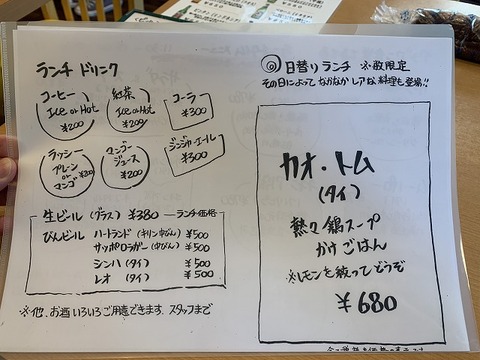 ランチ ドリンク
コーヒー
Ice or Hot
¥200
紅茶
Ice or Hot
¥200
コーラ
¥300
ラッシー
プレーン
or
マンゴ ¥200
マンゴー
ジュース
¥200
ジンジャエール
¥300
生ビール (グラス) ¥380 ランチ価格
びんビール ハートランド (キリン中びん) ¥500
サッポロラガー (中びん) ¥500
シンハ (タイ) ¥500
レオ (タイ) ¥500
※他、お酒いろいろご用意できます。スタッフまで
日替りランチ ※数限定
その日によって なかなか レアな 料理も登場!!
カオ・トム
(タイ)
熱々鶏スープ
かけごはん
※レモンを絞ってどうぞ
¥680